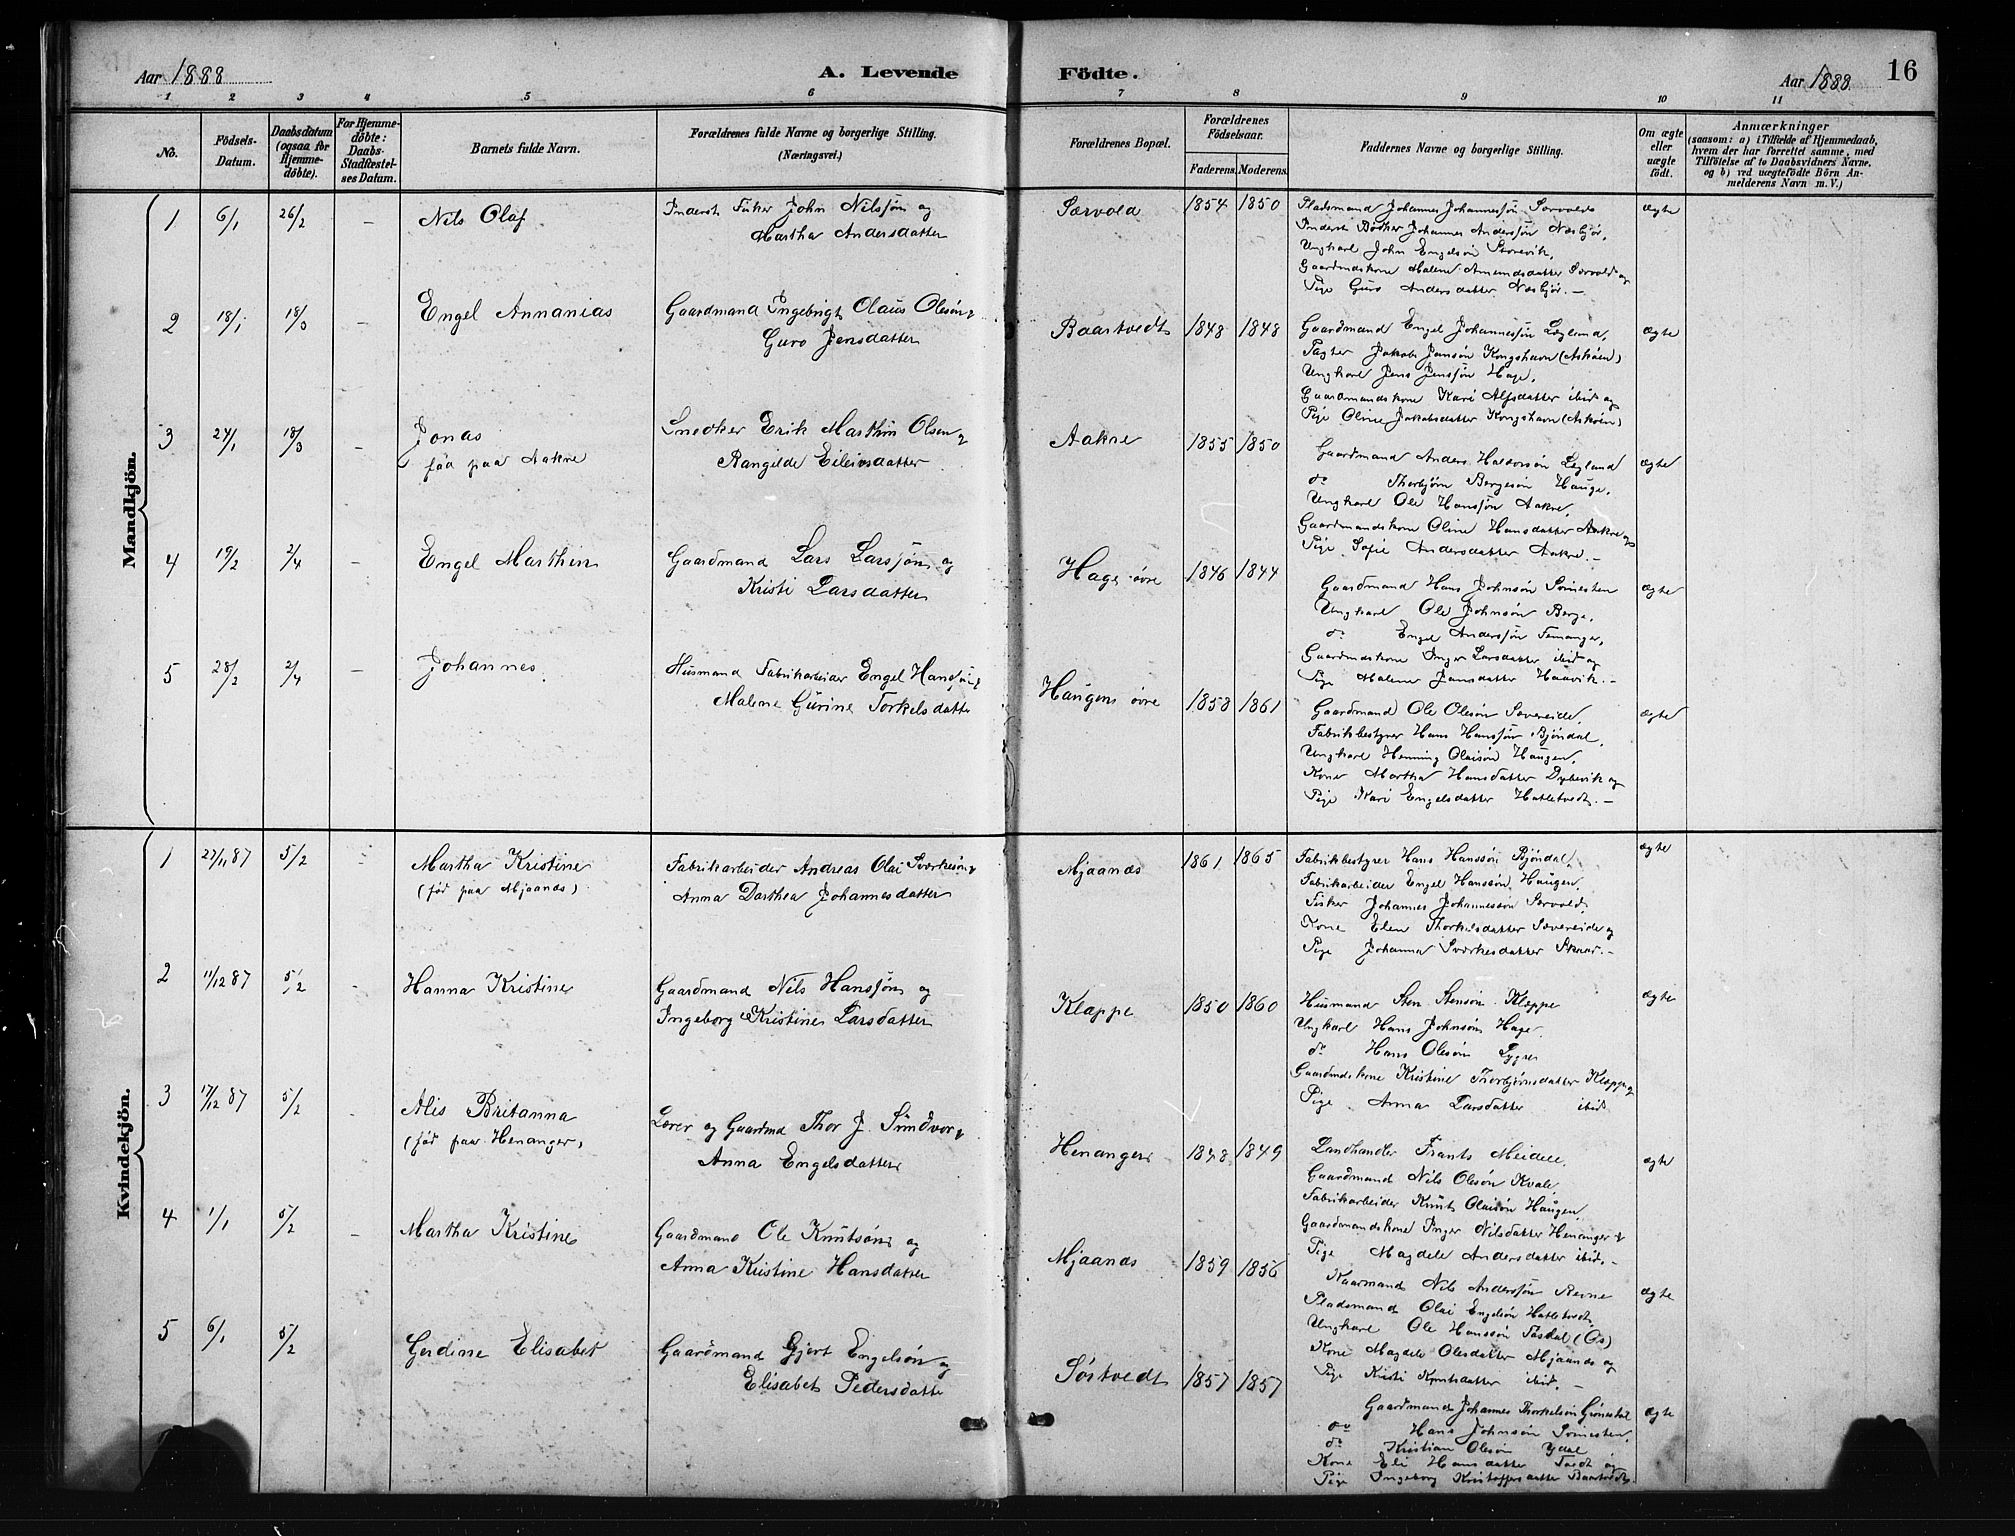 Aar 1888
A. Levende
Födte.
Aar 1888.
16
1 2 3 4 5 6 7 8 9 10 11
No.
Födsels-
Datum.
Daabsdatum
(ogsaa for
Hjemme-
döbte).
For Hjemme-
döbte:
Daabs-
Stadfæstel-
ses Datum.
Barnets fulde Navn.
Forældrenes fulde Navne og borgerlige Stilling.
(Næringsvei.)
Forældrenes Bopæl.
Forældrenes
Födselsaar.
Faderens. Moderens.
Faddernes Navne og borgerlige Stilling.
Om ægte
eller
uægte
født.
Anmærkninger
(saasom: a) i Tilfælde af Hjemmedaab,
hvem der har forrettet samme, med
Tilföielse af to Daabsvidners Navne,
og b) ved uægtefödte Börn An-
melderens Navn m. V.)
Mandkjön.
1 6/1 26/2 – Nils Olaf
Inderst Fisker John Nilssøn og
Martha Andersdatter
Særvold 1854 1850
Pladsmand Johannes Johannessøn Særvold
Inderst Bødker Johannes Anderssøn Næsbjør,
Ungkarl John Engelsøn Storevik,
Gaardmdskone Malene Amundsdatter Særvold og
Pige Guro Andersdatter Næsbjør. –
ægte
2 18/1 18/3 – Engel Annanias
Gaardmand Ingebrigt Olaus Olesøn &
Guro Jensdatter
Baartvedt 1848 1848
Gaardmand Engel Johannessøn Legland,
Pagter Jakob Jansøn Kongshavn (Askøen)
Ungkarl Jens Jenssøn Hage,
Gaardmandskone Kari Alfsdatter ibid og
Pige Oline Jakobsdatter Kongshavn (Askøen)
ægte
3 24/1 18/3 – Jonas
fød paa Aakre
Snedker Erik Marthin Olsen &
Rangilde Eileivsdatter
Aakre 1855 1850
Gaardmand Anders Haldorsøn Legland
do Thorbjørn Bergesøn Hauge,
Ungkarl Ole Hanssøn Aakre,
Gaardmandskone Oline Hansdatter Aakre og
Pige Sofie Andersdatter Aakre. –
ægte
4 19/2 2/4 – Engel Marthin
Gaardmand Lars Larssøn og
Kristi Larsdatter
Hage øvre 1846 1844
Gaardmand Hans Johnsøn
Ungkarl Ole Johnsøn Berge,
do Engel Anderssøn Femanger,
Gaardmdskone Inger Larsdatter ibid og
Pige Malene Jansdatter Haavik. –
ægte
5 28/2 2/4 – Johannes.
Husmand Fabrikarbeider Engel Hanssøn &
Malene Gurine Torkelsdatter
Haugen øvre 1858 1861
Gaardmand Ole Olesøn Sævereide,
Fabrikbestyrer Hans Hanssøn Bjöndal,
Ungkarl Henning Olaisøn Haugen,
Kone Martha Hansdatter Dybevik og
Pige Kari Engelsdatter Hatletvedt. –
ægte
Kvindekjön.
1 27/11 87 5/2 – Martha Kristine
(fød paa Mjaanæs)
Fabrikarbeider Andreas Olai Sverkesøn &
Anna Darthea Johannesdatter
Mjaanæs 1861 1865
Fabrikbestyrer Hans Hanssøn Bjöndal,
Fabrikarbeider Engel Hanssøn Haugen,
Fisker Johannes Johannessøn Særvold,
Kone Elen Thorkelsdatter Sævereide og
Pige Johanna Sverkesdatter Skaar. –
ægte
2 11/12 87 5/2 – Hanna Kristine
Gaardmand Nils Hanssøn og
Ingeborg Kristine Larsdatter
Kleppe 1850 1860
Husmand Sten Stensøn Kleppe
Ungkarl Hans Johnsøn Hage
do Hans Olesøn Lygre
Gaardmdskone Kristine Thorbjørnsdatter Kleppe &
Pige Anna Larsdatter ibid.
ægte
3 17/12 87 5/2 – Alis Britanna
(fød paa Henanger)
Lærer og Gaardmd Thor J. Sundvor &
Anna Engelsdatter
Henanger 1848 1849
Landhandler Frants Meidell,
Gaardmand Nils Olesøn Kvale,
Fabrikarbeider Knut Olaisøn Haugen,
Gaardmandskone Inger Nilsdatter Henanger &
Pige Magdele Andersdatter ibid. –
ægte
4 1/1 5/2 – Martha Kristine
Gaardmand Ole Knutsøn og
Anna Kristine Hansdatter
Mjaanæs 1859 1856
Kaarmand Nils Anderssøn Revne
Pladsmand Olai Engelsøn Hatletvedt,
Ungkarl Ole Hanssøn (Os)
Kone Magdele Olesdatter Mjaanæs og
Pige Kristi Knutsdatter ibid. –
ægte
5 6/1 5/2 Gerdine Elisabet
Gaardmand Gjert Engelsøn og
Elisabet Pedersdatter
Søstvedt 1857 1857
Gaardmand Johannes Thorkelsøn Grønestøl
do Hans Johnsøn
do Kristian Olesøn Ydal
Kone Eli Hansdatter Tvedt og
Pige Ingeborg Kristoffersdatter Baartvedt.
ægte